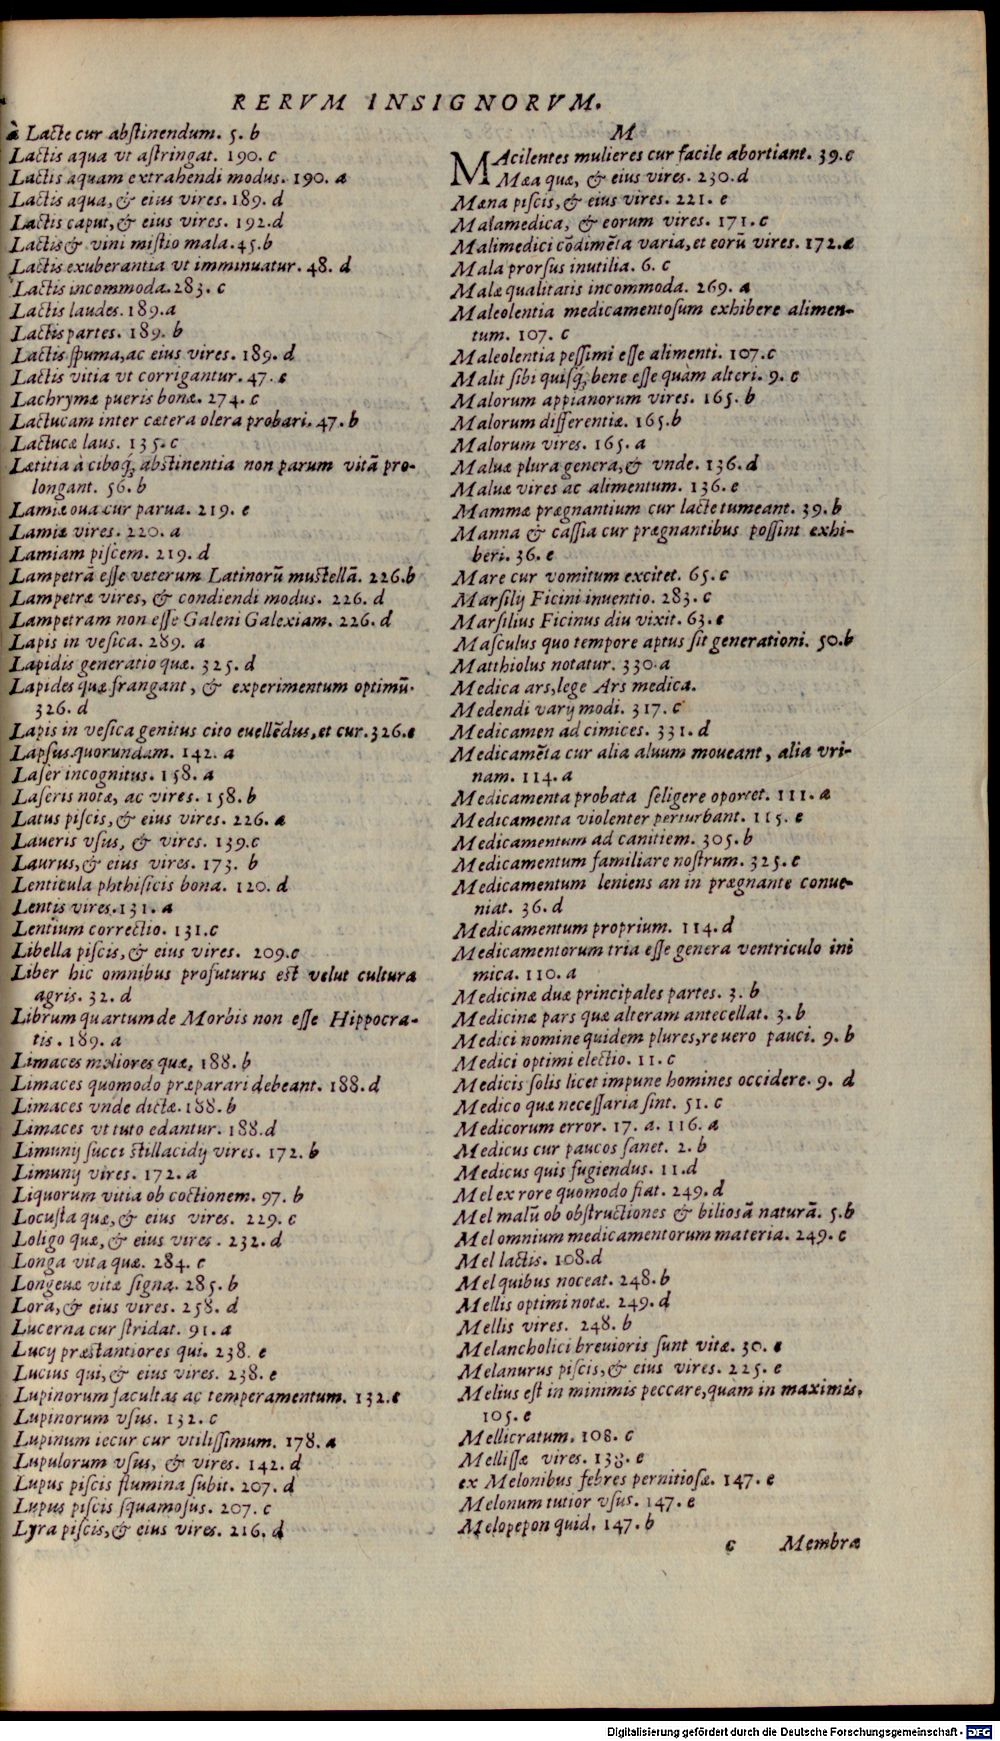 RERVM INSIGNORVM.
à Lacte cur abſtinendum. 5. b
Lactis aqua vt aſtringat. 190. c
Lactis aquam extrahendi modus. 190. a
Lactis aqua, & eius vires. 189. d
Lactis caput, & eius vires. 192. d
Lactis & vini miſtio mala. 45. b
Lactis exuberantia vt imminuatur. 48. d
Lactis incommoda. 283. c
Lactis laudes. 189. a
Lactis partes. 189. b
Lactis ſpuma, ac eius vires. 189. d
Lactis vitia vt corrigantur. 47. e
Lachrymæ pueris bonæ. 274. c
Lactucam inter cætera olera probari. 47. b
Lactucæ laus. 135. c
Lætitia à ciboq́; abſtinentia non parum vitā pro-
longant. 56. b
Lamiæ oua cur parua. 219. e
Lamiæ vires. 220. a
Lamiam piſcem. 219. d
Lampetrā eſſe veterum Latinorū muſtellā. 226. b
Lampetræ vires, & condiendi modus. 226. d
Lampetram non eſſe Galeni Galexiam. 226. d
Lapis in veſica. 289. a
Lapidis generatio quæ. 325. d
Lapides quæ frangant, & experimentum optimū.
326. d
Lapis in veſica genitus cito euellēdus, et cur. 326. e
Lapſus quorundam. 142. a
Laſer incognitus. 158. a
Laſeris notæ, ac vires. 158. b
Latus piſcis, & eius vires. 226. a
Laueris vſus, & vires. 139. c
Laurus, & eius vires. 173. b
Lenticula phthiſicis bona. 120. d
Lentis vires. 131. a
Lentium correctio. 131. c
Libella piſcis, & eius vires. 209. c
Liber hic omnibus profuturus eſt velut cultura
agris. 32. d
Librum quartum de Morbis non eſſe Hippocra-
tis. 189. a
Limaces meliores quæ. 188. b
Limaces quomodo præparari debeant. 188. d
Limaces vnde dictæ. 188. b
Limaces vt tuto edantur. 188. d
Limunij ſucci ſtillacidij vires. 172. b
Limunij vires. 172. a
Liquorum vitia ob coctionem. 97. b
Locuſta quæ, & eius vires. 229. c
Loligo quæ, & eius vires. 232. d
Longa vita quæ. 284. c
Longeuæ vitæ ſigna. 285. b
Lora, & eius vires. 258. d
Lucerna cur ſtridat. 91. a
Lucij præſtantiores qui. 238. e
Lucius qui, & eius vires. 238. e
Lupinorum facultas ac temperamentum. 132. e
Lupinorum vſus. 132. c
Lupinum iecur cur vtiliſſimum. 178. a
Lupulorum vſus, & vires. 142. d
Lupus piſcis flumina ſubit. 207. d
Lupus piſcis ſquamoſus. 207. c
Lyra piſcis, & eius vires. 216. d
M
MAcilentes mulieres cur facile abortiant. 39. c
Mæa quæ, & eius vires. 230. d
Mæna piſcis, & eius vires. 221. e
Mala medica, & eorum vires. 171. c
Mali medici cōdimēta varia, et eorū vires. 172. e
Mala prorſus inutilia. 6. c
Malæ qualitatis incommoda. 269. a
Maleolentia medicamentoſum exhibere alimen-
tum. 107. c
Maleolentia peſſimi eſſe alimenti. 107. c
Malit ſibi quiſq́; bene eſſe quàm alteri. 9. c
Malorum appianorum vires. 165. b
Malorum differentiæ. 165. b
Malorum vires. 165. a
Maluæ plura genera, & vnde. 136. d
Maluæ vires ac alimentum. 136. e
Mammæ prægnantium cur lacte tumeant. 39. b
Manna & caſſia cur prægnantibus poſſint exhi-
beri. 36. e
Mare cur vomitum excitet. 65. c
Marſilij Ficini inuentio. 283. c
Marſilius Ficinus diu vixit. 63. e
Maſculus quo tempore aptus ſit generationi. 50. b
Matthiolus notatur. 330. a
Medica ars, lege Ars medica.
Medendi varij modi. 317. c
Medicamen ad cimices. 331. d
Medicamēta cur alia aluum moueant, alia vri-
nam. 114. a
Medicamenta probata ſeligere oportet. 111. a
Medicamenta violenter perturbant. 115. e
Medicamentum ad canitiem. 305. b
Medicamentum familiare noſtrum. 325. e
Medicamentum leniens an in prægnante conue-
niat. 36. d
Medicamentum proprium. 114. d
Medicamentorum tria eſſe genera ventriculo ini
mica. 110. a
Medicinæ duæ principales partes. 3. b
Medicinæ pars quæ alteram antecellat. 3. b
Medici nomine quidem plures, re uero pauci. 9. b
Medici optimi electio. 11. c
Medicis ſolis licet impune homines occidere. 9. d
Medico quæ neceſſaria ſint. 51. c
Medicorum error. 17. a. 116. a
Medicus cur paucos ſanet. 2. b
Medicus quis fugiendus. 11. d
Mel ex rore quomodo fiat. 249. d
Mel malū ob obſtructiones & bilioſā naturā. 5. b
Mel omnium medicamentorum materia. 249. c
Mel lactis. 108. d
Mel quibus noceat. 248. b
Mellis optimi notæ. 249. d
Mellis vires. 248. b
Melancholici breuioris ſunt vitæ. 30. e
Melanurus piſcis, & eius vires. 225. e
Melius eſt in minimis peccare, quam in maximis.
105. e
Mellicratum. 108. c
Melliſſæ vires. 138. e
ex Melonibus febres pernitioſæ. 147. e
Melonum tutior vſus. 147. e
Melopepon quid. 147. b
c Membra
Digitalisierung gefördert durch die Deutsche Forschungsgemeinschaft - DFG